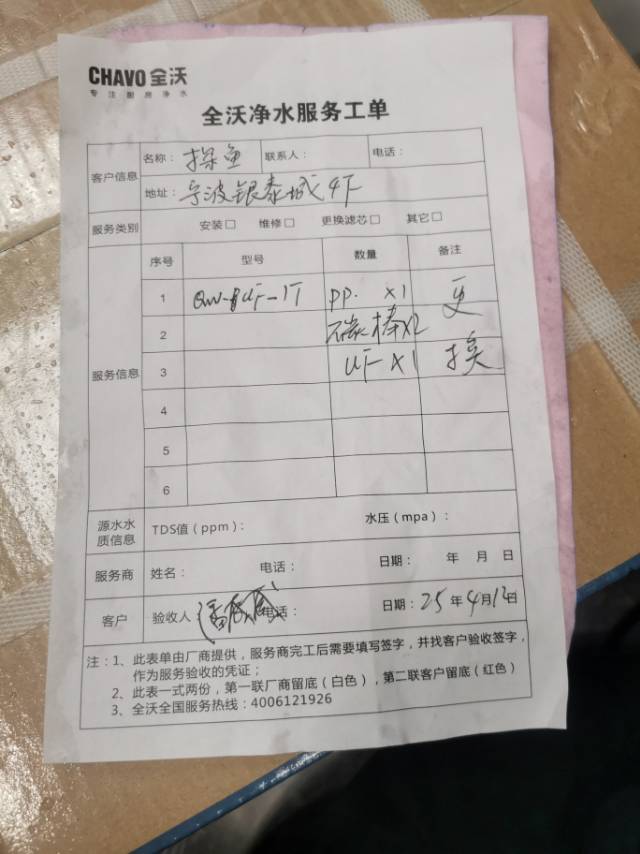 CHAVO 全沃
专注厨房净水
全沃净水服务工单
客户信息
名称：探鱼 联系人： 电话：
地址：宁波银泰城4F
服务类别 安装□ 维修□ 更换滤芯□ 其它□
服务信息
序号 型号 数量 备注
1 PP. X1 更
2 碳棒X2
3 UF X1 换
4
5
6
源水水质信息 TDS值（ppm）： 水压（mpa）：
服务商 姓名： 电话： 日期： 年 月 日
客户 验收人 电话： 日期：25年4月12日
注：1、此表单由厂商提供，服务商完工后需要填写签字，并找客户验收签字，
作为服务验收的凭证；
2、此表一式两份，第一联厂商留底（白色），第二联客户留底（红色）
3、全沃全国服务热线：4006121926